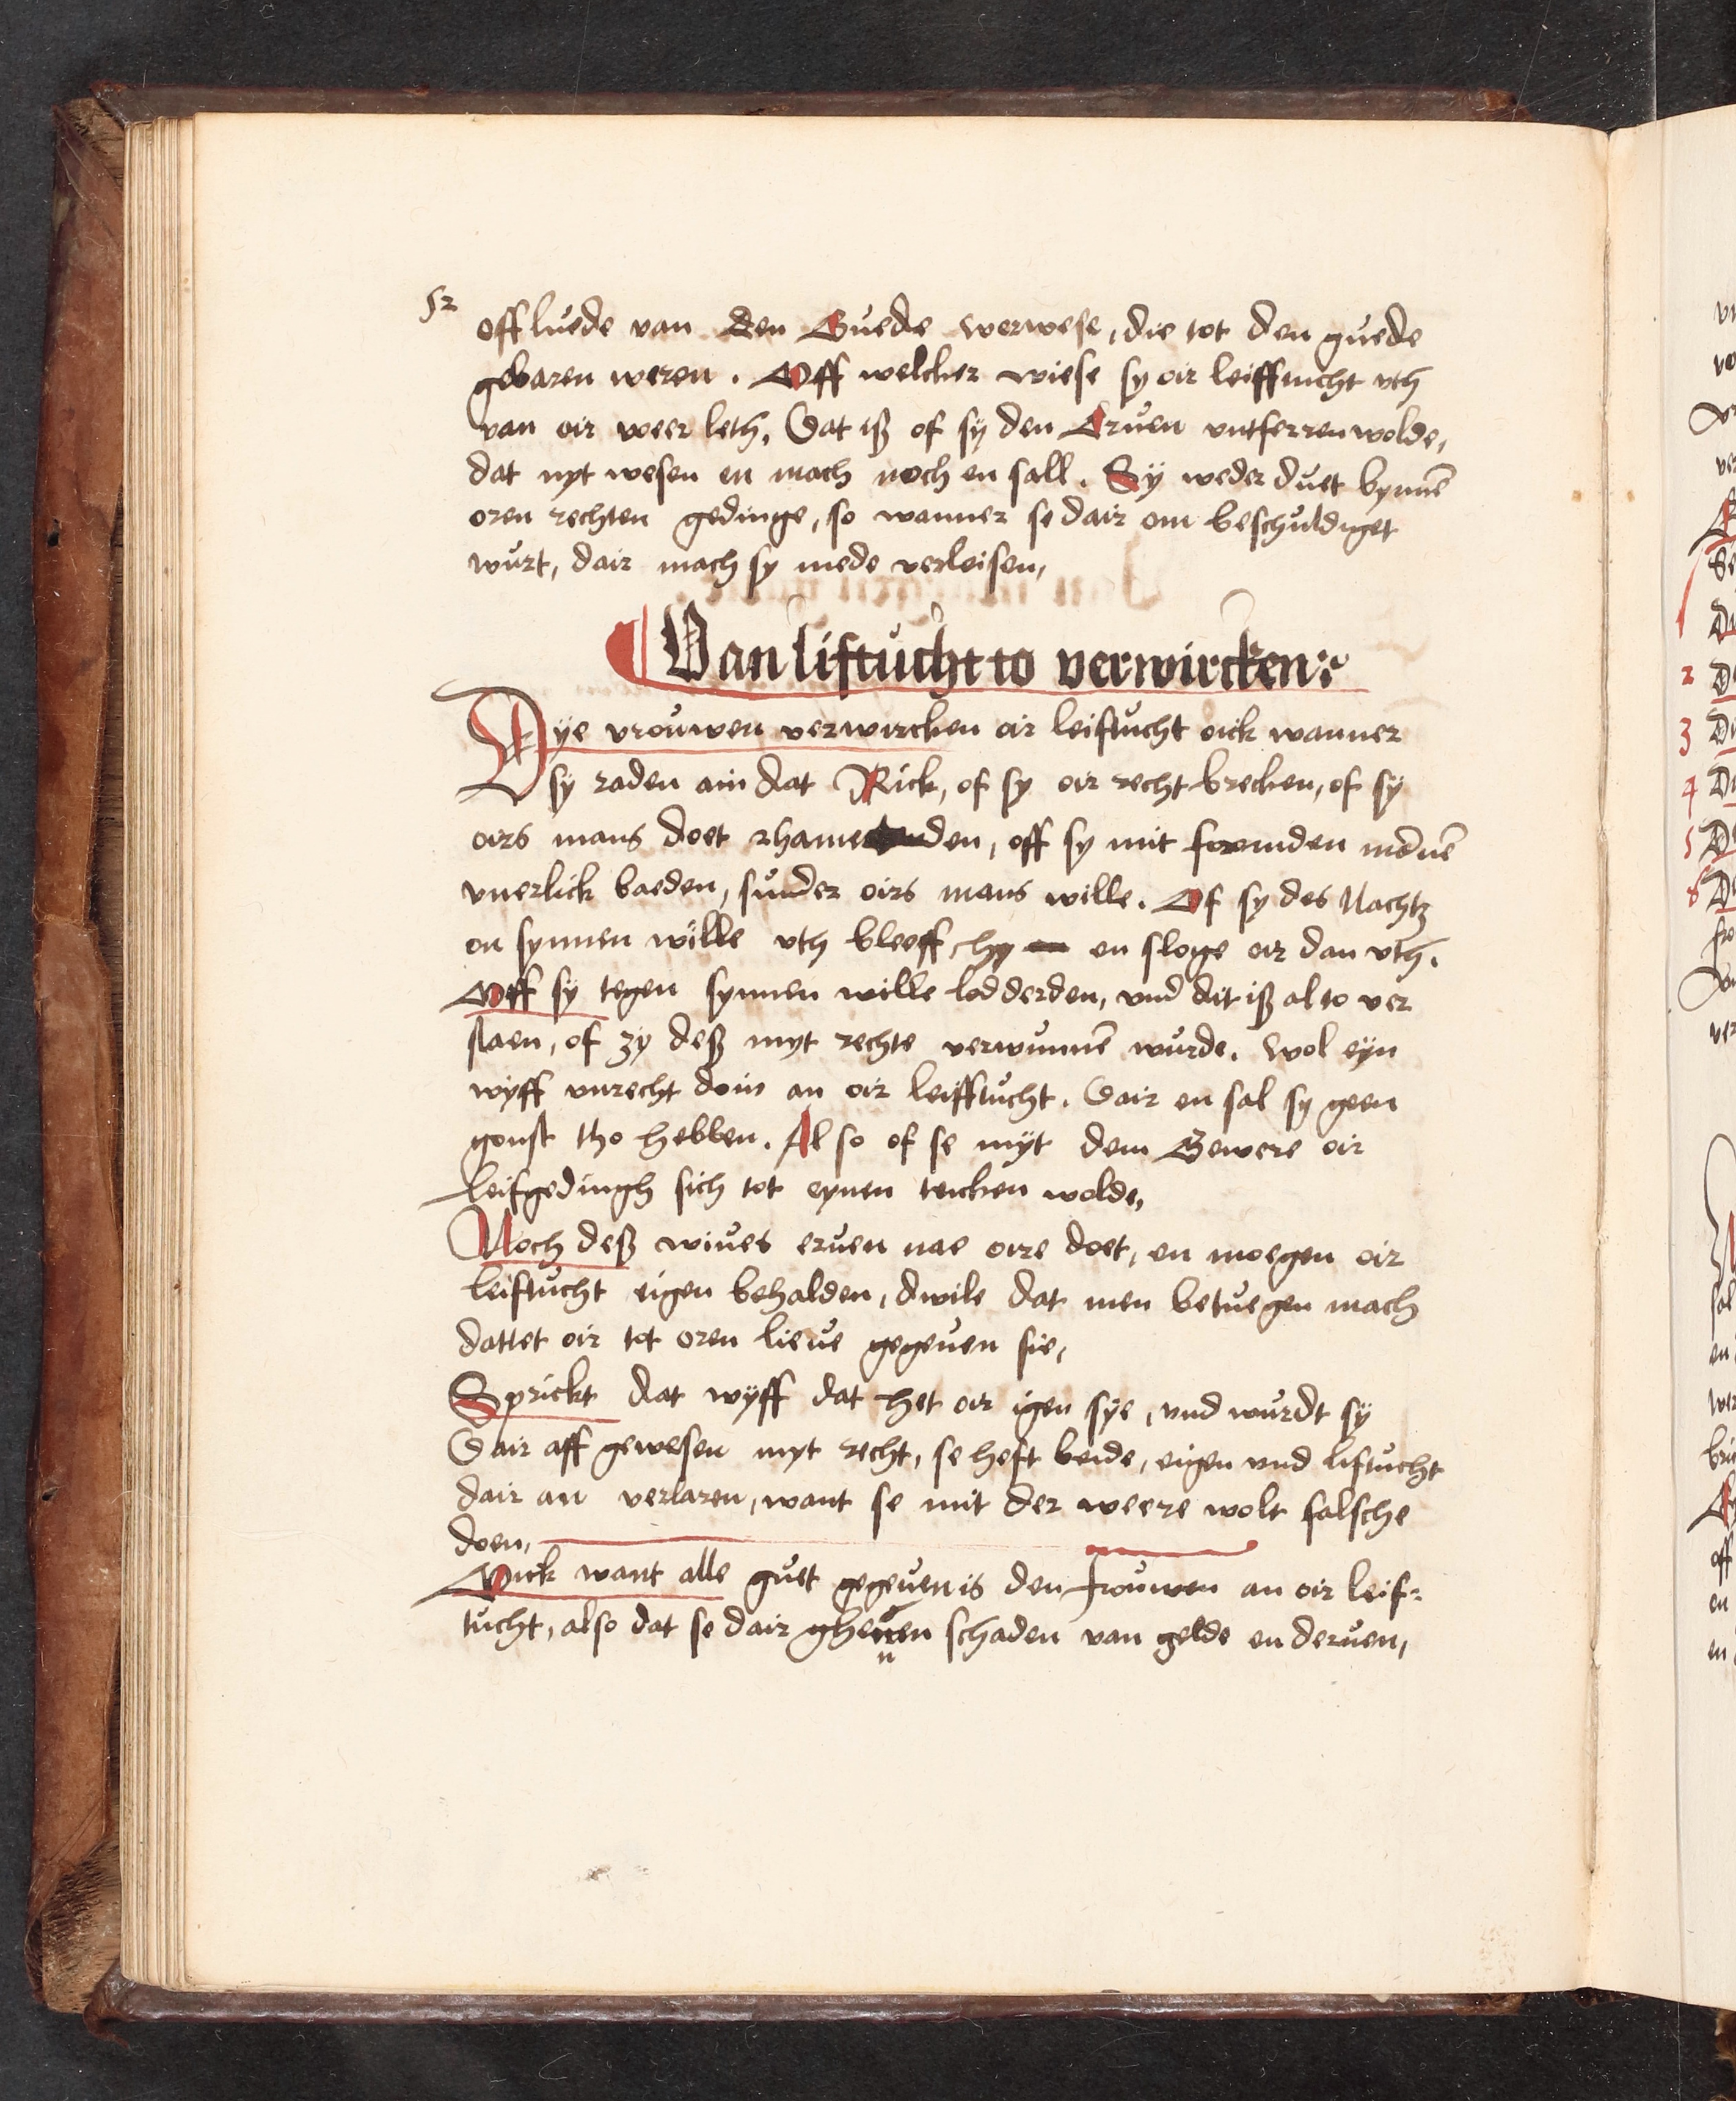 52
off luede van den Guede verwese, die tot den guede
gebaren weren. Off welcker wiese sy oir leifftucht vth
van oir weer leth. Dat iß of sÿ den Eruen vntferren wolde,
dat nyt wesen en mach noch en sall. Sÿ weder duet bynnē
oren rechten gedinge, so wanner se dair om beschuldiget
wurt, dair mach sy mede verleisen,
Van liftucht to verwircken
Dÿe vrouwen verwircken oir leiftucht oick wanner
sy raden ain dat Rick, of sy oir recht brecken, of sÿ
oirs mans doet den, off sy mit fromden mēnē
vnerlick baeden, sunder oirs mans wille. Of sy des Nachtz
on synnen wille vth bleeff, hy en sloge oir dan vth.
Off sÿ tegen synnen wille lodderden, vnd dit iß al to ver
staen, of zÿ deß myt rechte verwunnē wurde. Wol eÿn
wÿff vnrecht doin an oir leifftucht. Dair en sal sy geen
gonst tho hebben. Al so of se mÿt dem Gewere oir
leifgedingh sich tot eynen teicken wolde,
Noch deß wiues eruen nae oire doet, en moegen oir
leiftucht eigen behalden, dwile dat men betuegen mach
dattet oir tot oren lieue gegeuen sie,
Sprickt dat wÿff dat het oir igen sÿe, vnd wurdt sÿ
Dair aff gewesen myt recht, se heft beide, eigen vnd liftucht
dair an verlaren, want se mit der weere wolt falsche
doen,
Oick want alle guet gegeuen is den frouwen an oir leif-
tucht, also dat se dair ghenen schaden van gelde en deruen,
n